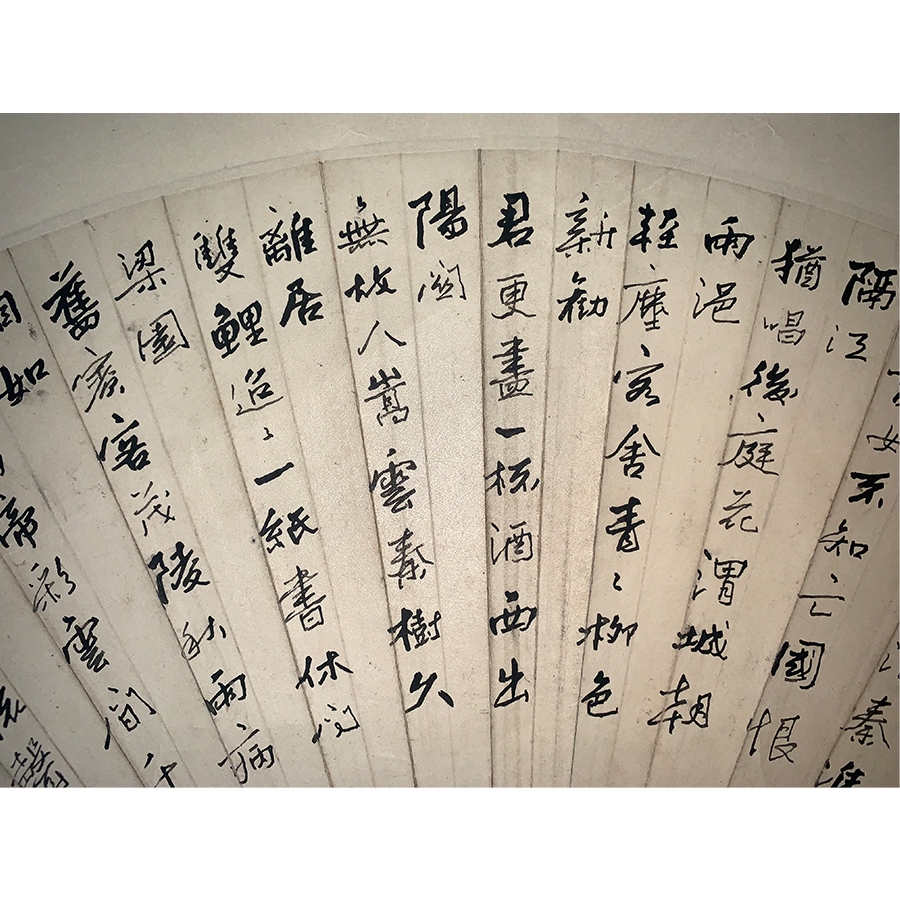 秦淮
女不知亡國恨
隔江
猶唱後庭花渭城朝
雨浥
輕塵客舍青〻柳色
新勸
君更盡一杯酒西出
陽關
無故人嵩雲秦樹久
離居
雙鯉迢〻一紙書休問
梁園
舊賓客茂陵秋雨病
相如
帝彩雲間千